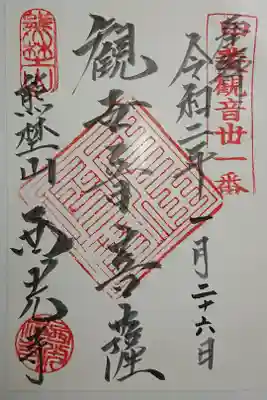 奉拝
甲斐観音廿一番
令和二年一月二十六日
観世音菩薩
熊埜山 西光寺